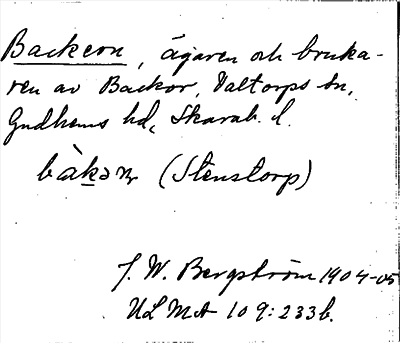 Backern, ägaren och bruka-
ren av Backor, Valtorps sn,
Gudhems hd, Skarab. l.
(Stenstorp)
J. W. Bergström 1904-05
ULMA 109:233b.